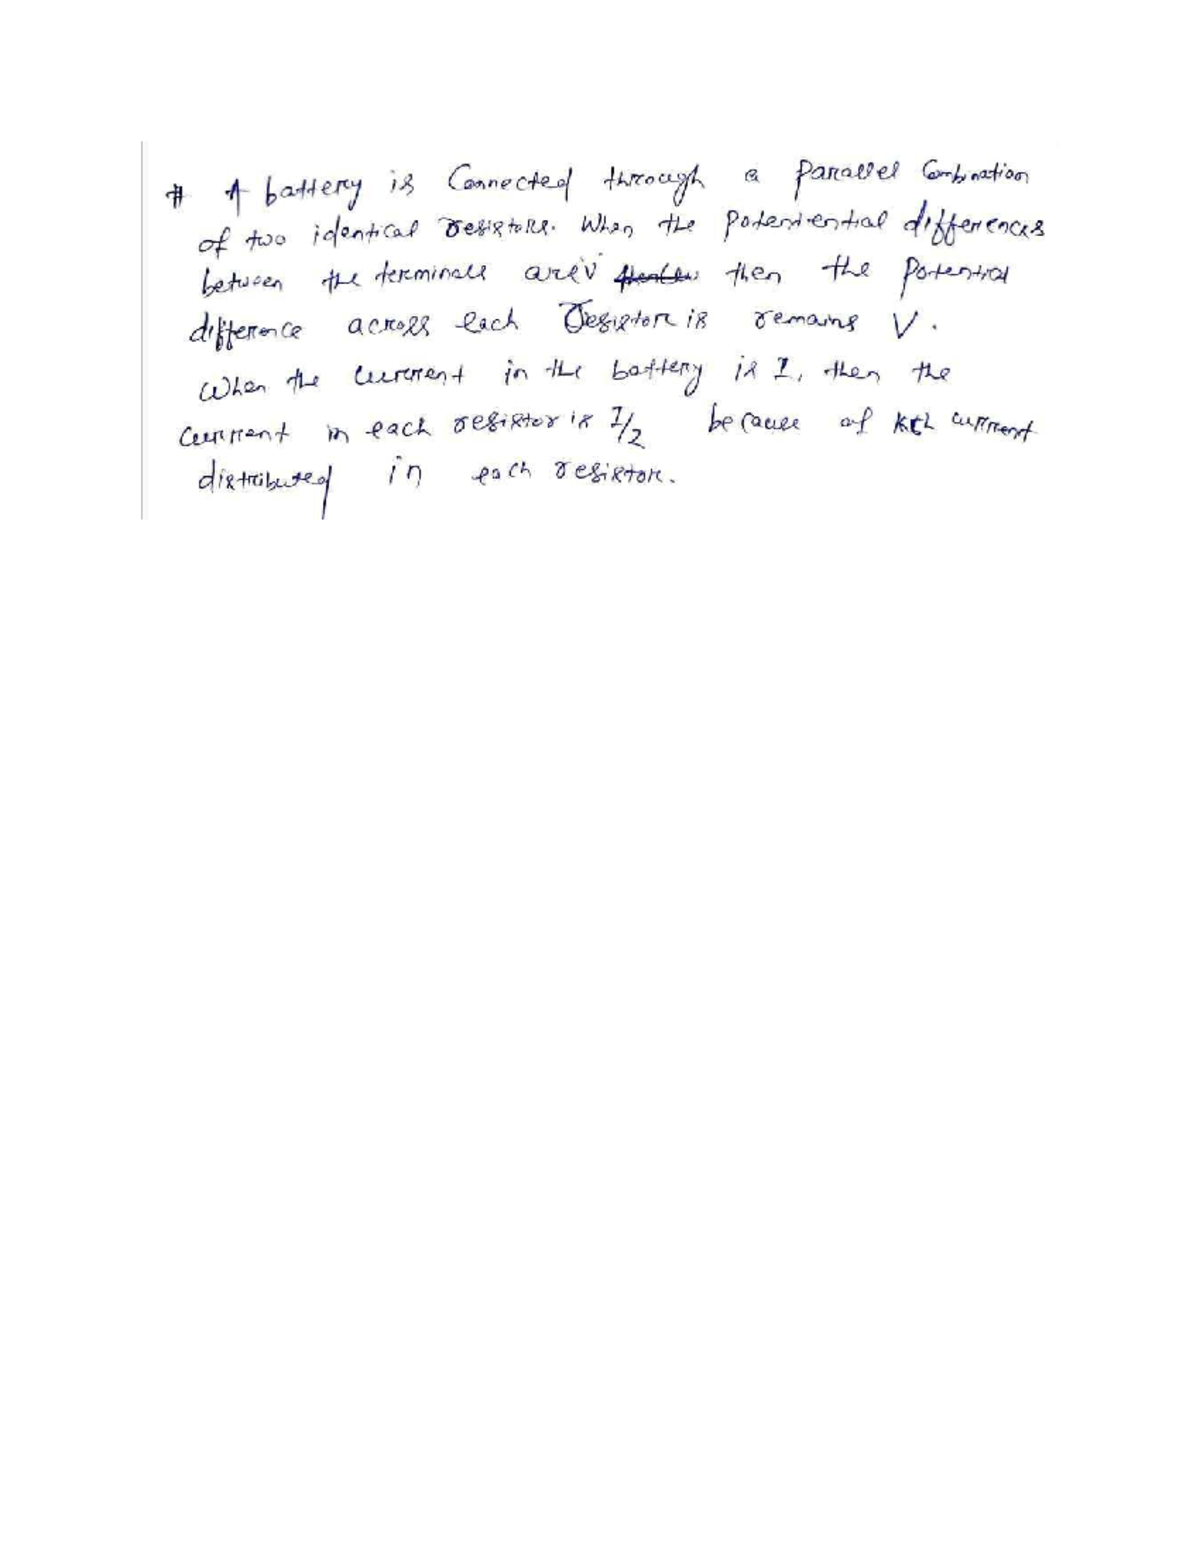 # A battery is Connected through a parallel Combination
of two identical resistors. When the potenential differences
between the terminals are V then the potential
difference across each resistor is remains V.
When the current in the battery is I, then the
current in each resistor is I/2 because of KCL current
distributed in each resistor.